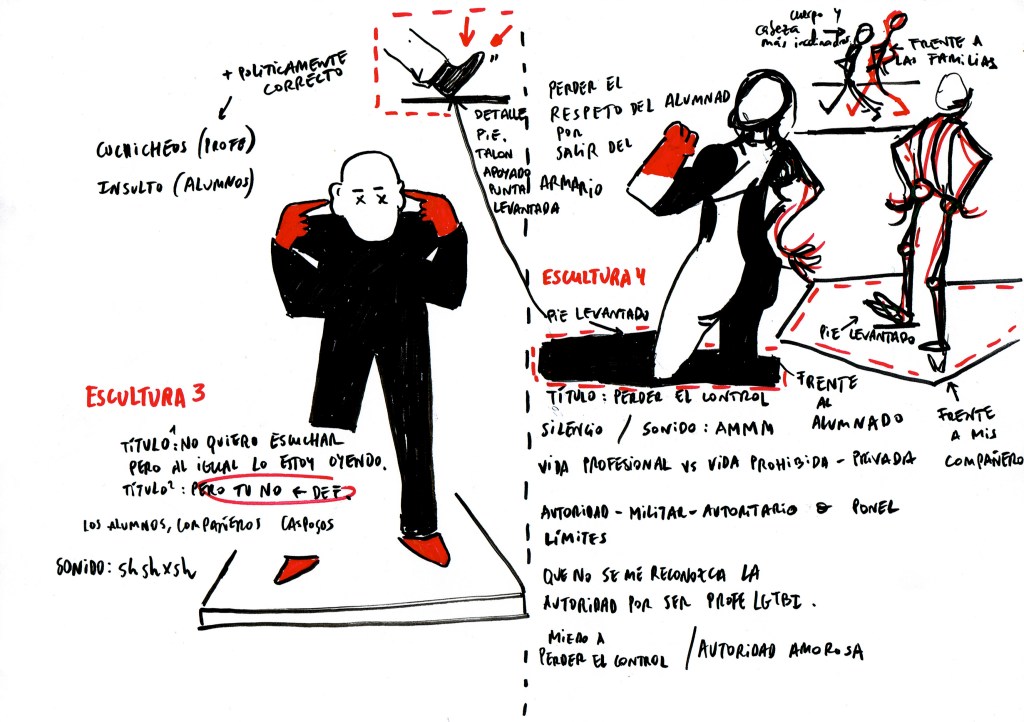 + POLITICAMENTE
CORRECTO
CUCHICHEOS (PROFE)
INSULTO (ALUMNOS)
DETALLE
PIE.
TALON
APOYADO
PUNTA
LEVANTADA
ESCULTURA 3
TÍTULO¹: NO QUIERO ESCUCHAR
PERO AL IGUAL LO ESTOY OYENDO.
TÍTULO²: PERO TU NO ← DEF.
LOS ALUMNOS, COMPAÑEROS CASPOSOS
SONIDO: shshxsh
PERDER EL
RESPETO DEL ALUMNAD
POR
SALIR DEL
ARMARIO
CUERPO Y
CABEZA
MÁS INCLINADOS
FRENTE A
LAS FAMILIAS
ESCULTURA 4
PIE LEVANTADO
PIE LEVANTADO
FRENTE
AL
ALUMNADO
FRENTE
A MIS
COMPAÑERO
TÍTULO: PERDER EL CONTROL
SILENCIO / SONIDO: AMMM
VIDA PROFESIONAL VS VIDA PROHIBIDA - PRIVADA
AUTORIDAD - MILITAR - AUTORITARIO & PONEL
LÍMITES
QUE NO SE ME RECONOZCA LA
AUTORIDAD POR SER PROFE LGTBI.
MIEDO A
PERDER EL CONTROL / AUTORIDAD AMOROSA